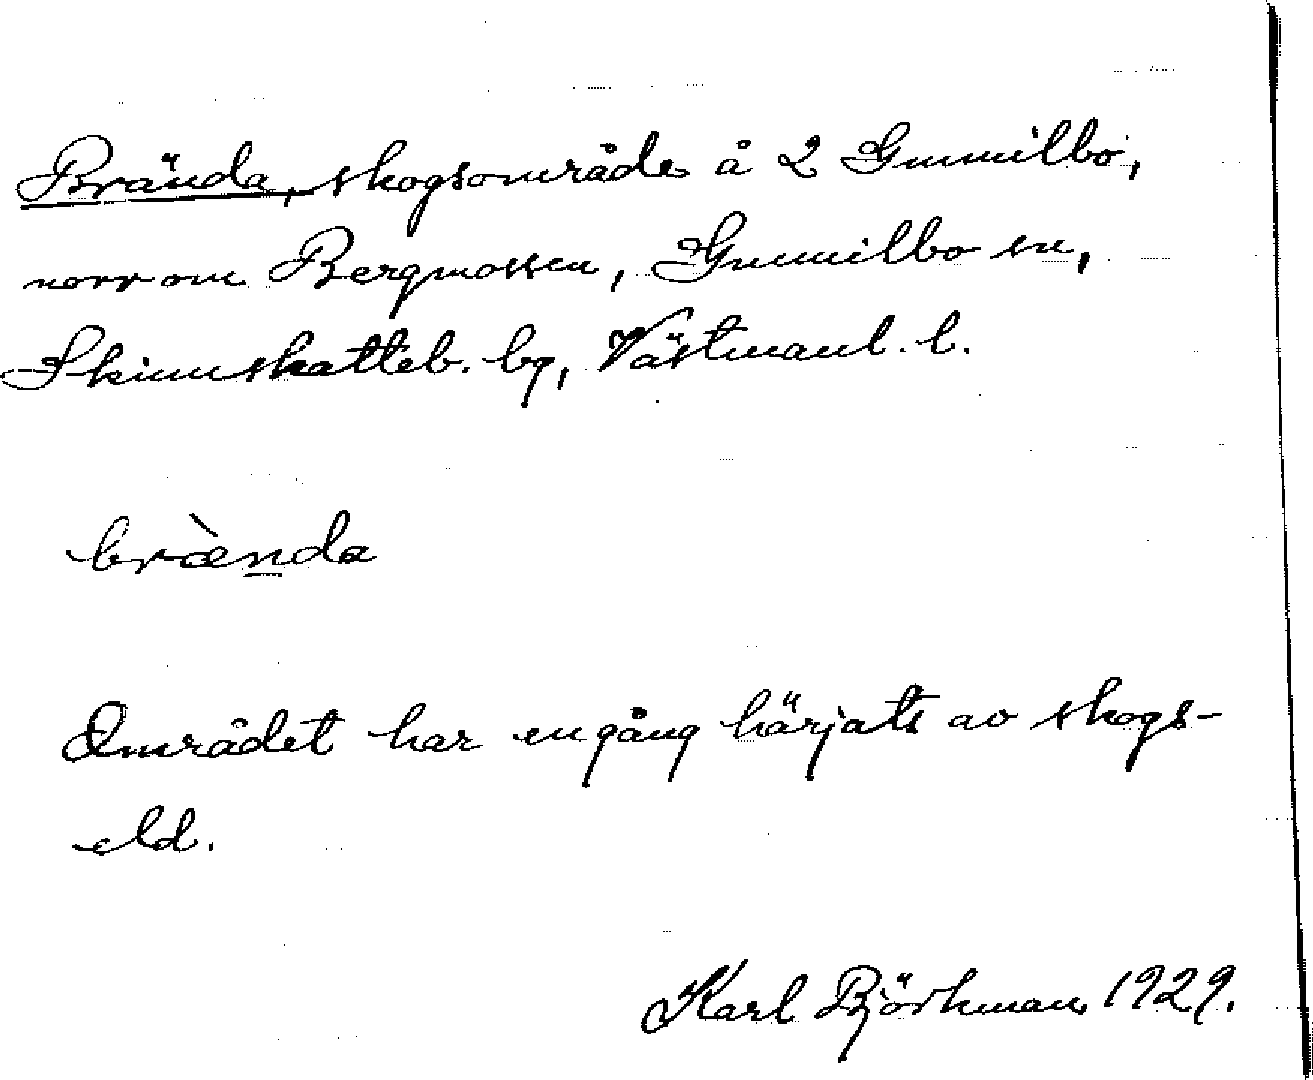 Brända, skogsområde å 2 Gunnilbo,
norr om Bergmossen, Gunnilbo sn,
Skinnskatteb. bg, Västmanl. l.
brænda
Området har engång härjats av skogs-
eld.
Karl Björkman 1929.